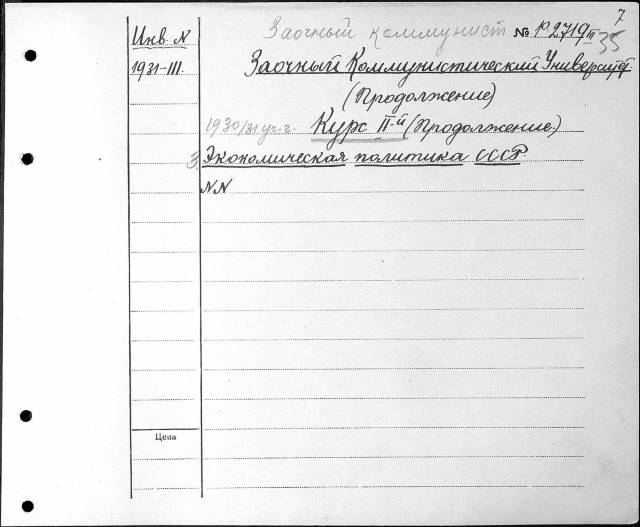 7
Заочный коммунист № P2719 III/35
Инв. N
1931-III. Заочный Коммунистический Университет.
(Продолжение)
1930/31 уч. г. Курс II-й (Продолжение.)
3, Экономическая политика СССР.
NN
Цена